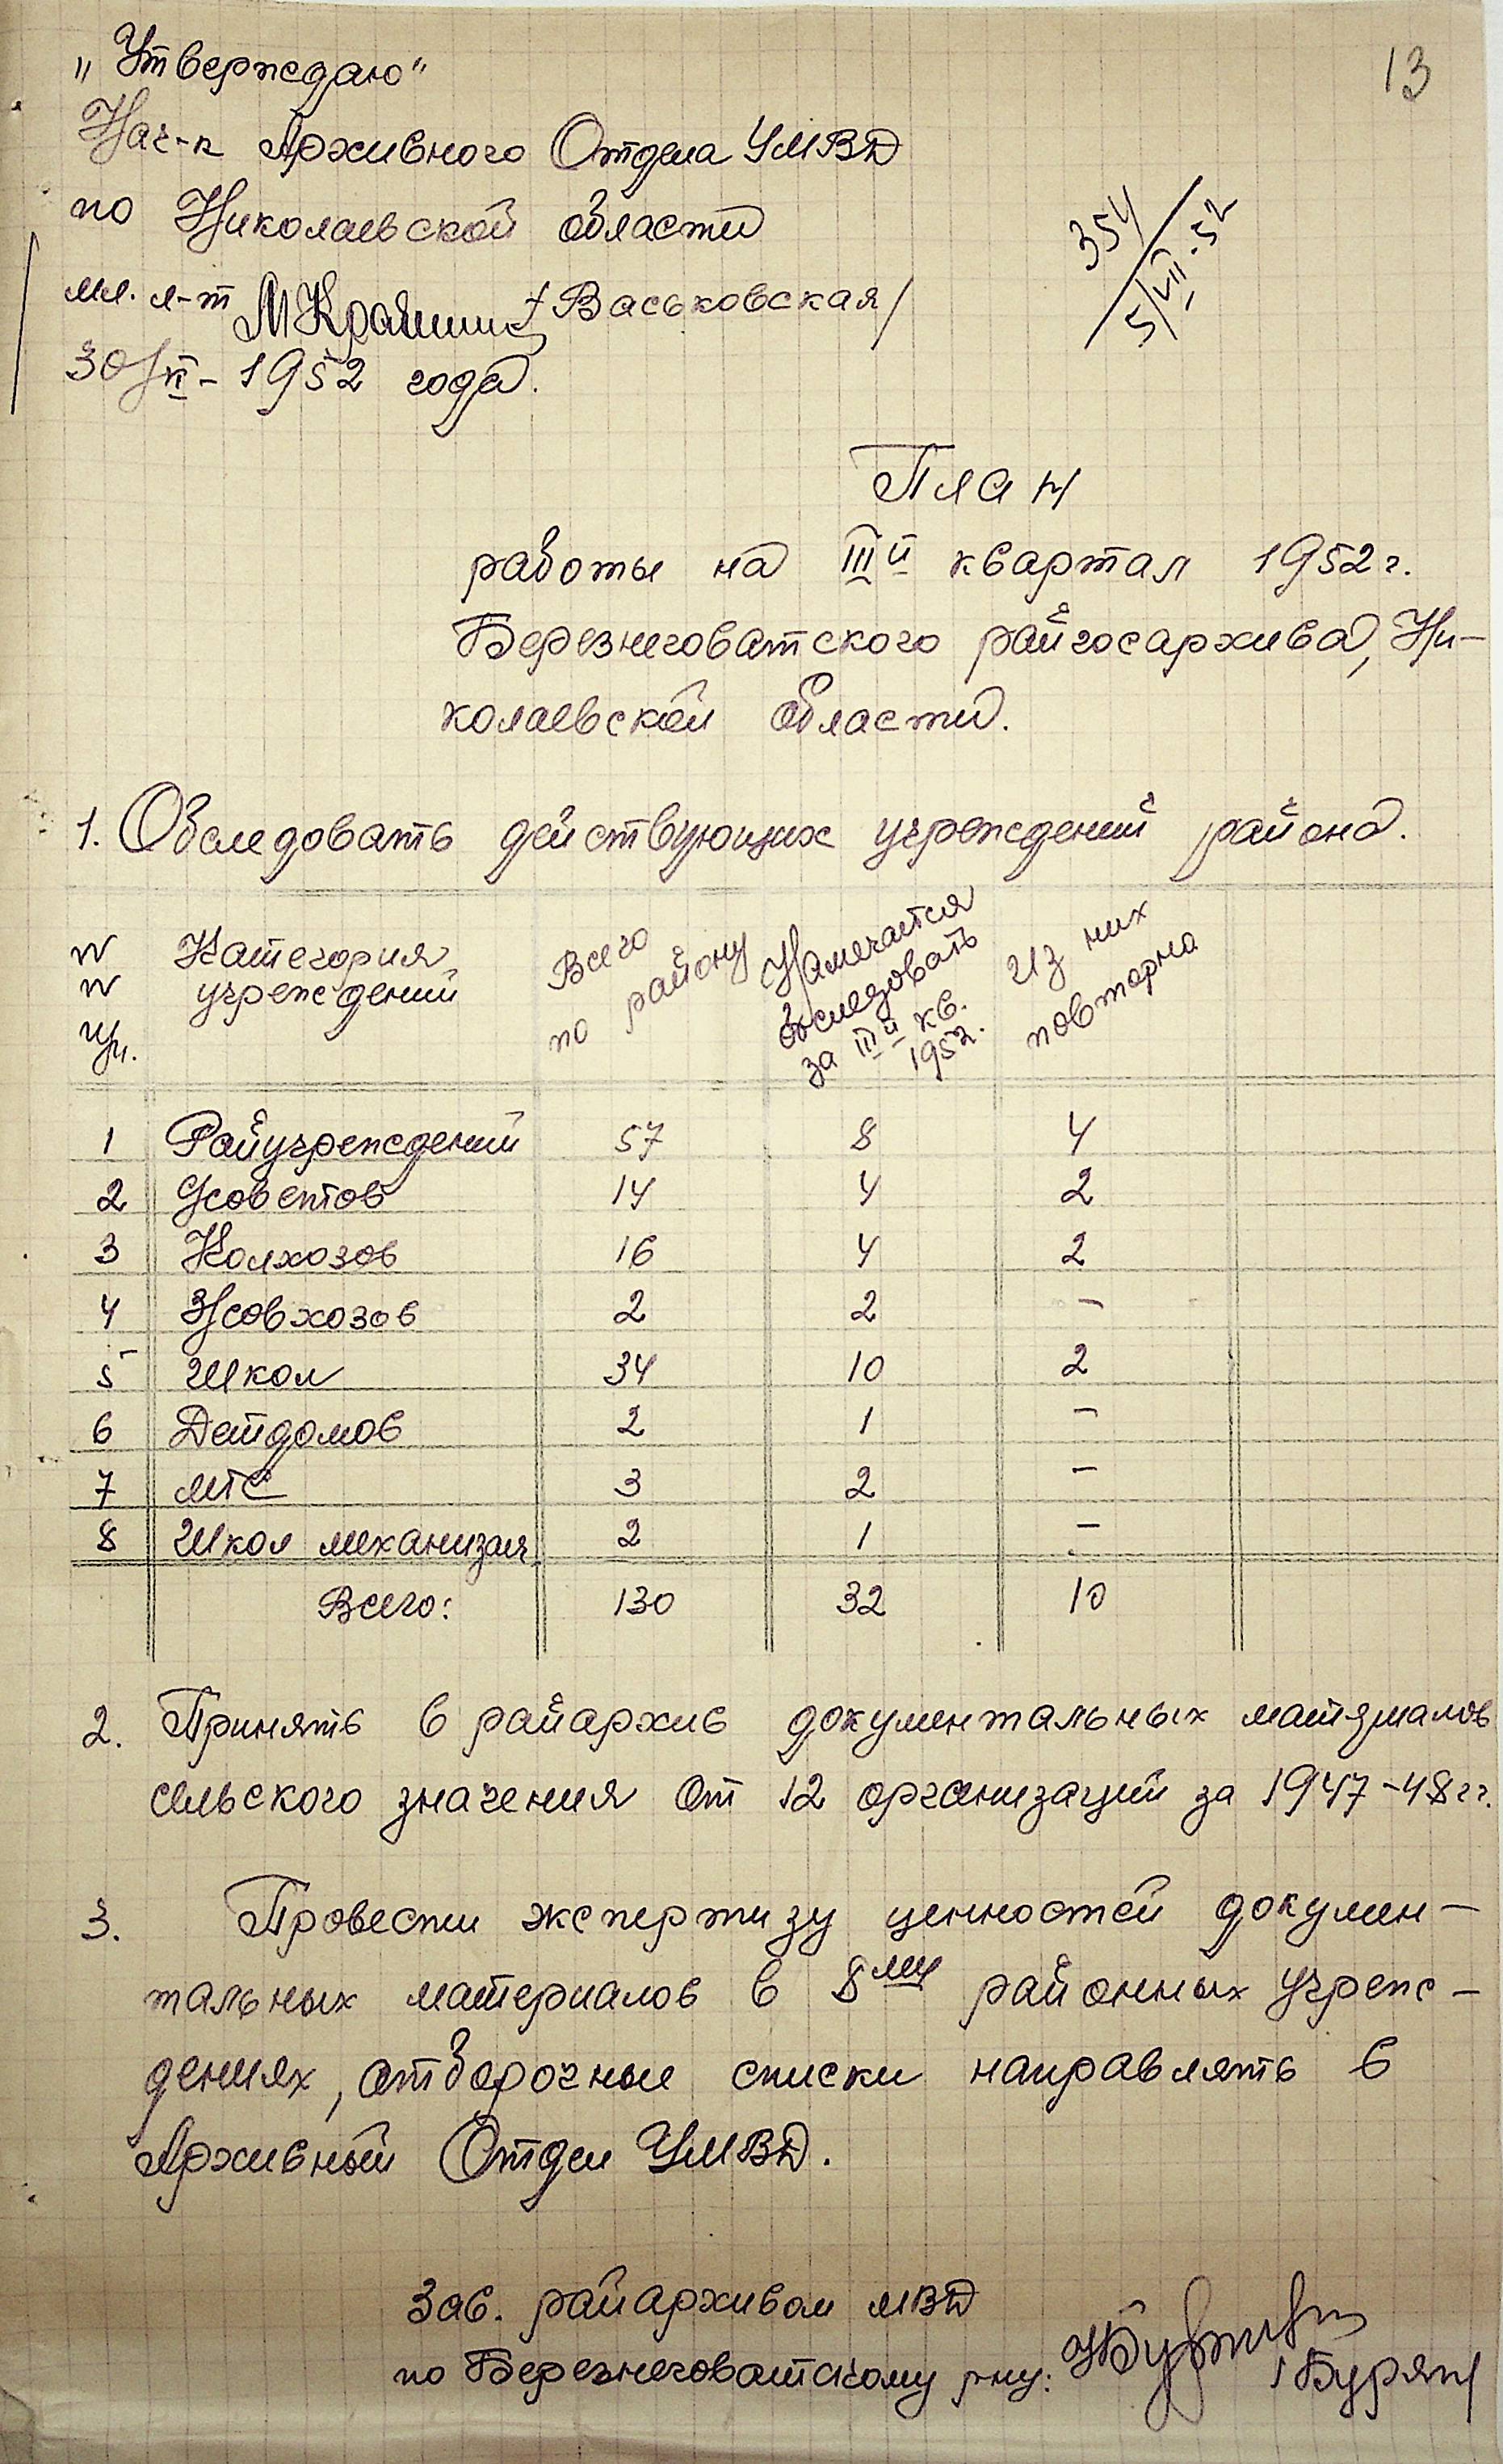 13
„Утверждаю"
Нач-к Архивного Отдела УМВД
по Николаевской области
мл. л-т /Васьковская/
30/VI - 1952 года.
354
5/VII-52
План
работы на III й квартал 1952 г.
Березнеговатского райгосархива, Ни-
колаевской области.
1. Обследовать действующих учреждений района.
№ № пп. | Категория учреждений | Всего по району | Намечается обследовать за III й кв. 1952. | Из них повторно
1 Райучреждений 57 8 4
2 С/советов 14 4 2
3 Колхозов 16 4 2
4 З/совхозов 2 2 -
5 Школ 34 10 2
6 Детдомов 2 1 -
7 МТС 3 2 -
8 Школ механизац. 2 1 -
Всего: 130 32 10
2. Принять в райархив документальных материалов
сельского значения от 12 организаций за 1947-48 гг.
3. Провести экспертизу ценностей докумен-
тальных материалов в 8ми районных учреж-
дениях, отборочные списки направлять в
Архивный Отдел УМВД.
Зав. райархивом МВД
по Березнеговатскому р-ну:
/Буряк/